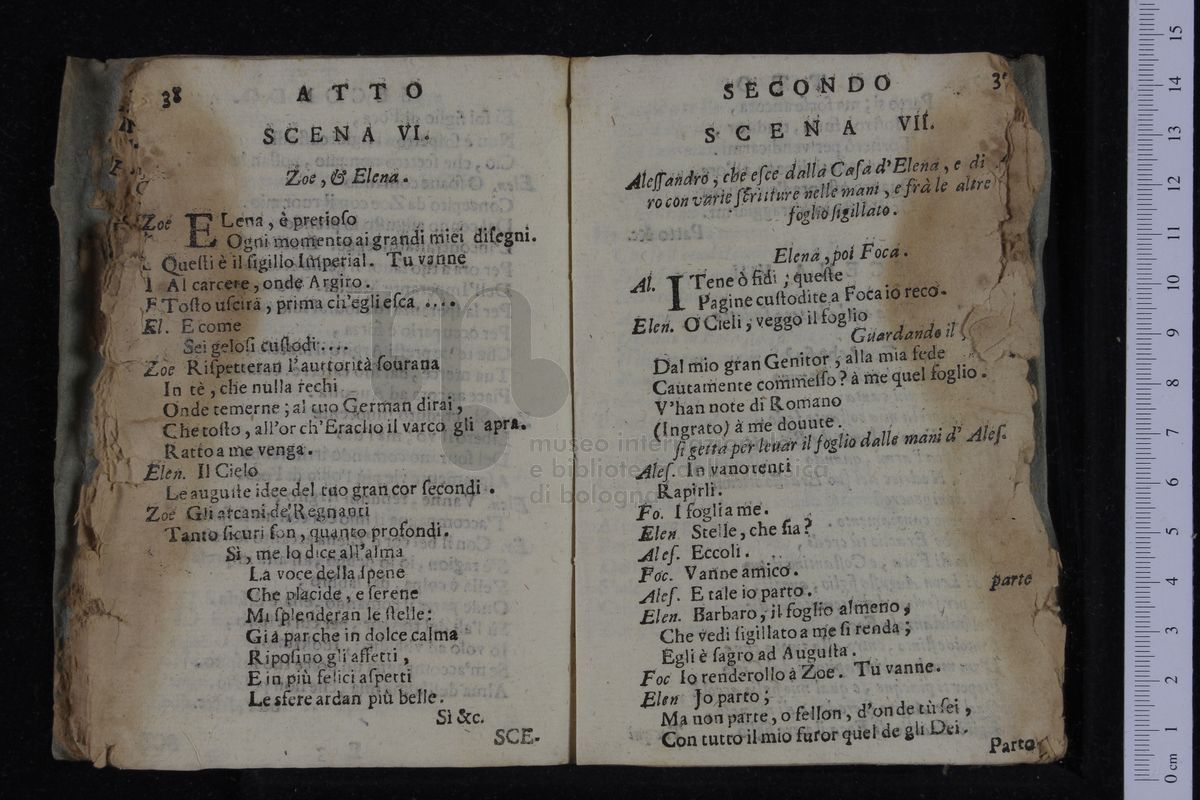 38 ATTO
SCENA VI.
Zoe, & Elena.
Zoe ELena, è pretioso
Ogni momento ai grandi miei disegni.
Questi è il sigillo Imperial. Tu vanne
Al carcere, onde Argiro.
Tosto uscirà, prima ch'egli esca ....
El. E come
Sei gelosi custodi....
Zoe Rispetteran l'auttorità sourana
In tè, che nulla rechi
Onde temerne; al tuo German dirai,
Che tosto, all'or ch'Eraclio il varco gli apra.
Ratto a me venga.
Elen. Il Cielo
Le auguste idee del tuo gran cor secondi.
Zoe Gli arcani de'Regnanti
Tanto sicuri son, quanto profondi.
Sì, me lo dice all'alma
La voce della spene
Che placide, e serene
Mi splenderan le stelle:
Già par che in dolce calma
Riposino gli affetti,
E in più felici aspetti
Le sfere ardan più belle.
Sì &c.
SCE-
SECONDO
SCENA VII.
Alessandro, che esce dalla Casa d'Elena, e di
ro con varie scritture nelle mani, e frà le altre
foglio sigillato.
Elena, poi Foca.
Al. ITene ò fidi; queste
Pagine custodite a Foca io reco.
Elen. O Cieli, veggo il foglio
Guardando il
Dal mio gran Genitor, alla mia fede
Cautamente commesso? à me quel foglio.
V'han note di Romano
(Ingrato) à me douute.
si getta per leuar il foglio dalle mani d' Ales.
Ales. In vano tenti
Rapirli.
Fo. I fogli a me.
Elen Stelle, che fia?
Ales. Eccoli.
Foc. Vanne amico.
Ales. E tale io parto. parte
Elen. Barbaro, il foglio almeno,
Che vedi sigillato a me si renda;
Egli è sagro ad Augusta.
Foc Io renderollo à Zoe. Tu vanne.
Elen Jo parto;
Ma non parte, o fellon, d'onde tù sei,
Con tutto il mio furor quel de gli Dei.
Parto
museo internazionale
e biblioteca della musica
di bologna
0 cm 1 2 3 4 5 6 7 8 9 10 11 12 13 14 15